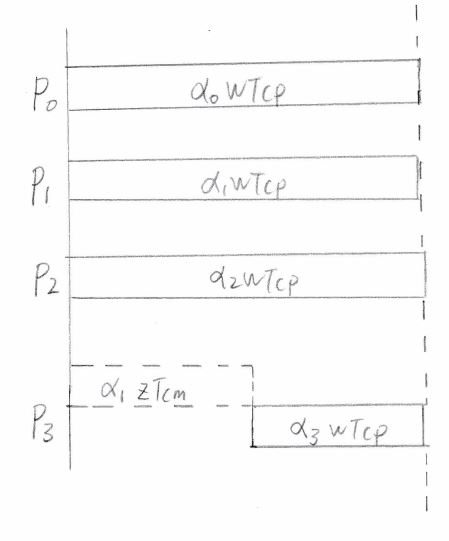 P₀ α₀wTcp
P₁ α₁wTcp
P₂ α₂wTcp
α₁ zTcm
P₃ α₃wTcp